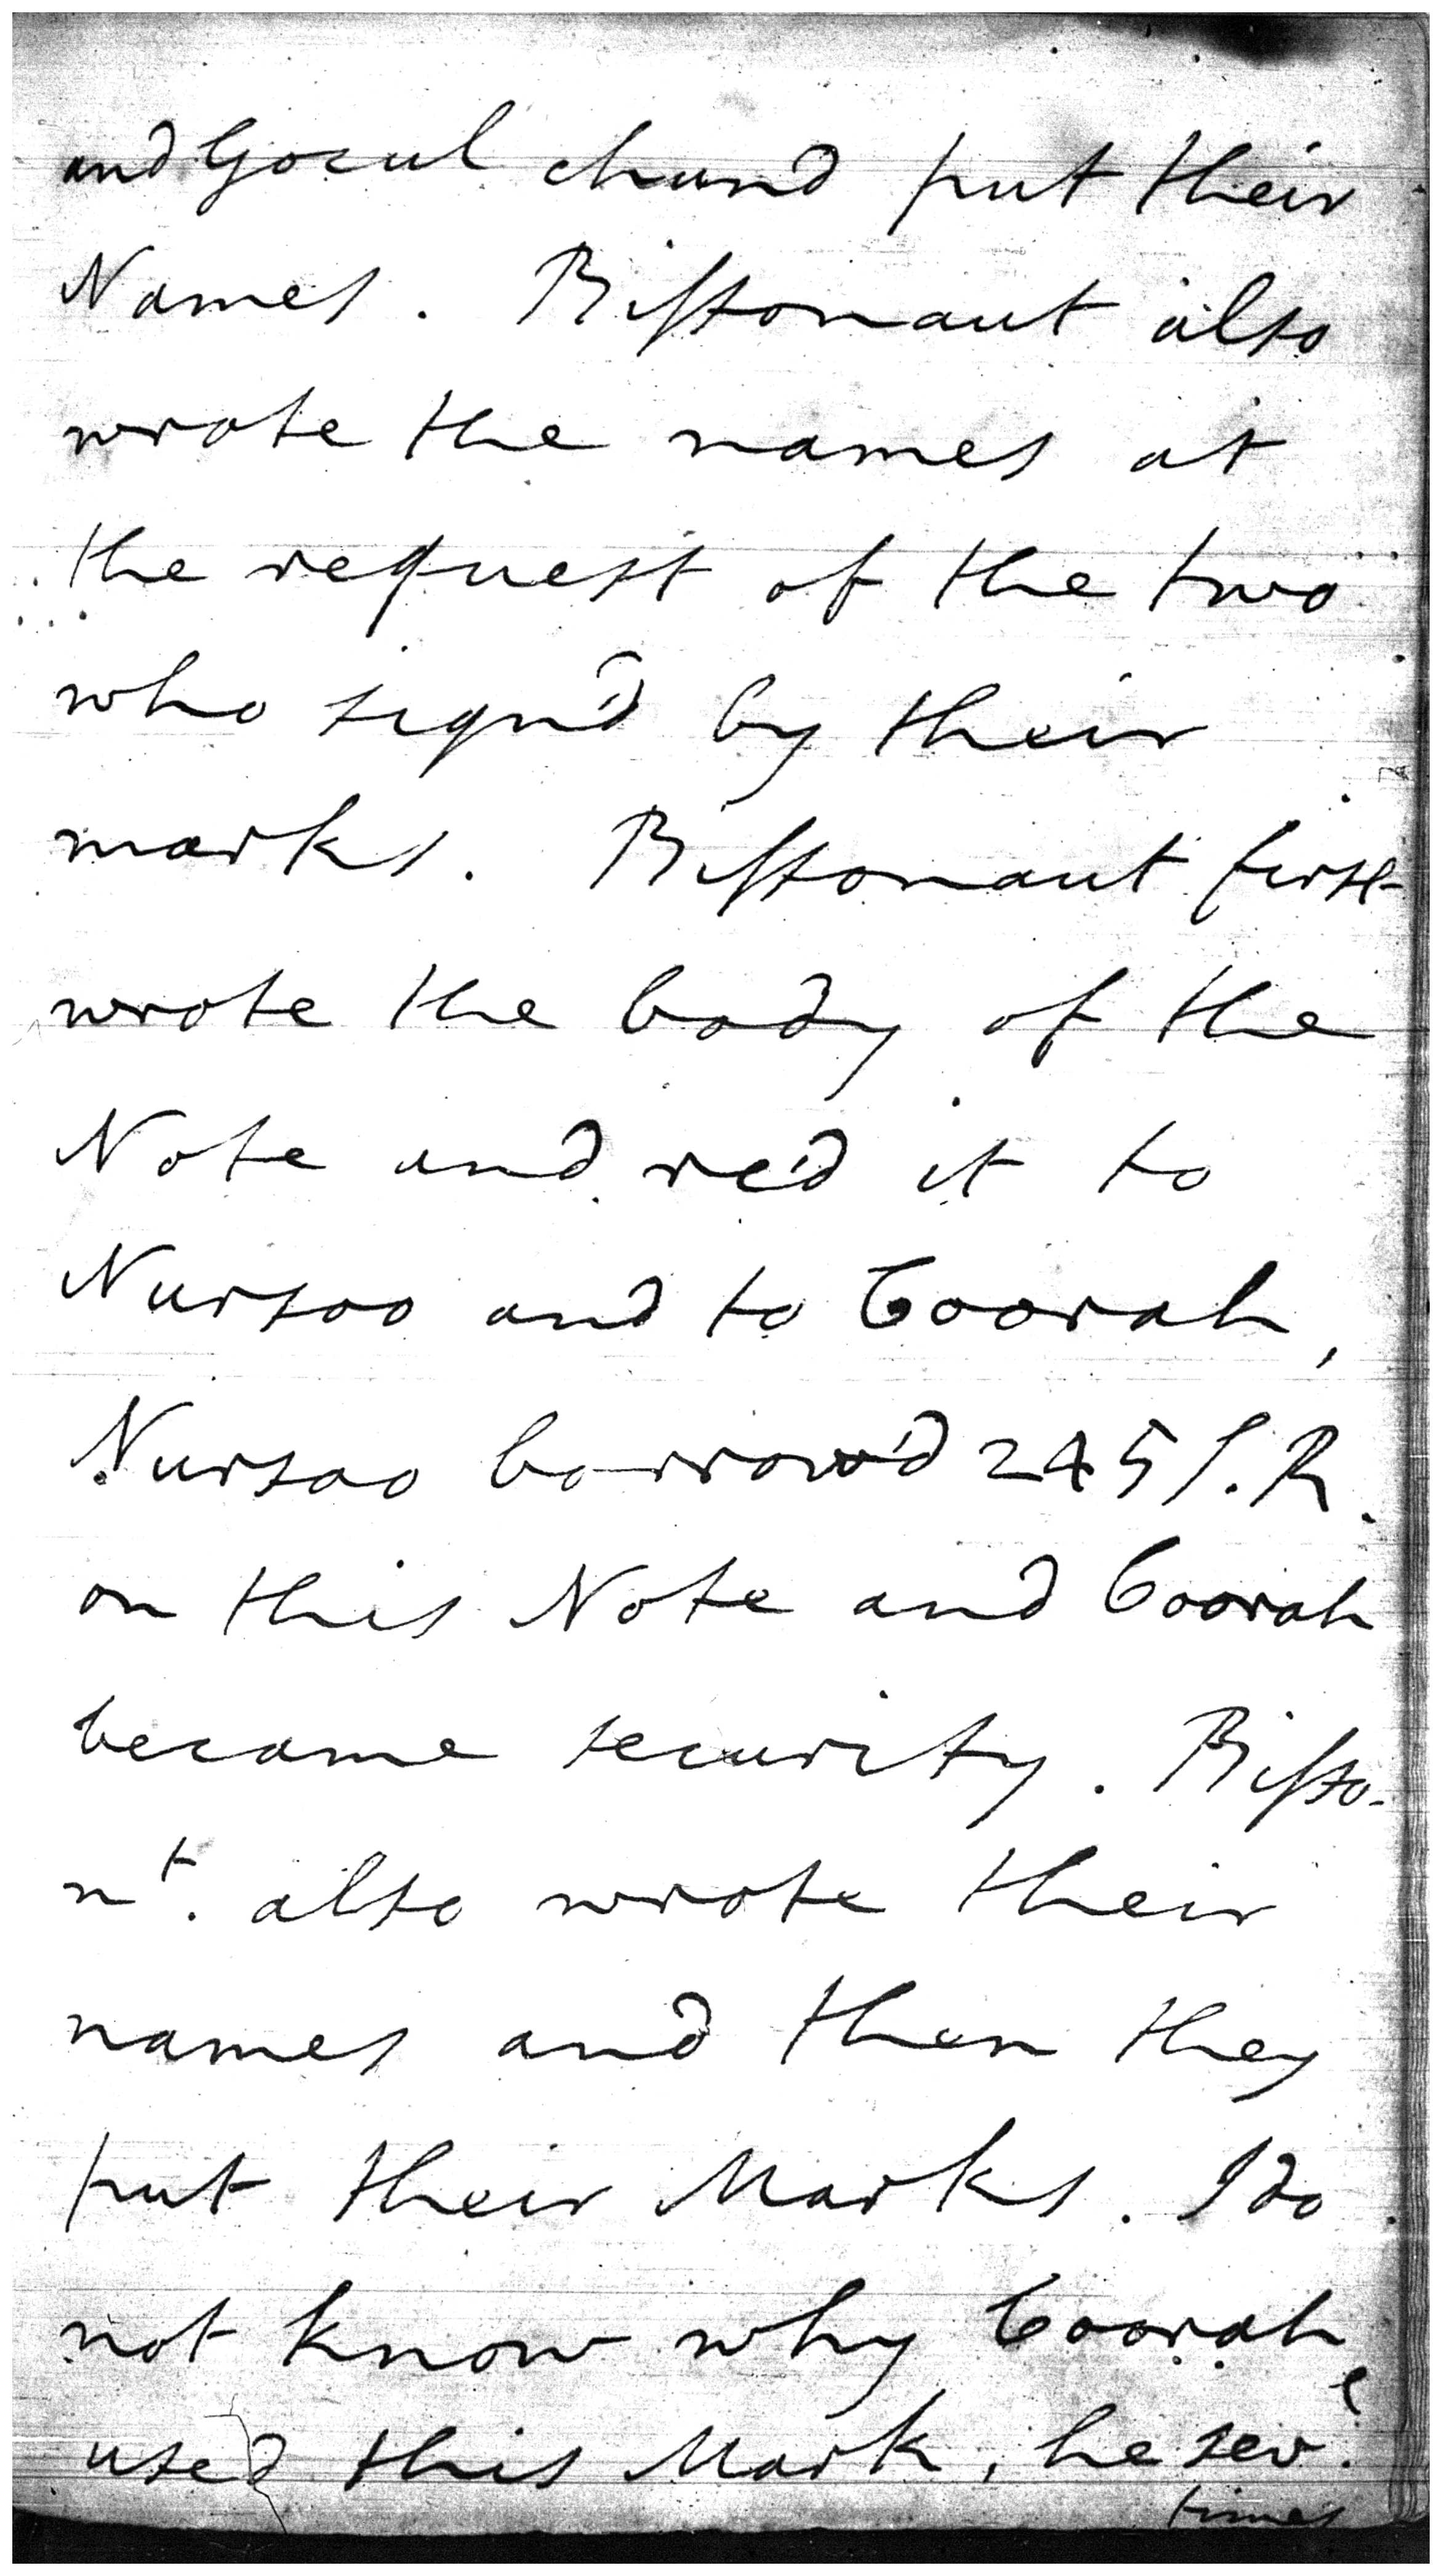 and Gocul chund put their
Names. Bissonaut also
wrote the names at
the request of the two
who sign'd by their
marks. Bissonaut first
wrote the body of the
Note and red it to
Nursoo and to Coorah,
Nursoo borrow'd 245 S.R.
on this Note and Coorah
became security. Bisso-
nt. also wrote their
names and then they
put their Marks. I do
not know why Coorah
used this Mark, he sevl.
times